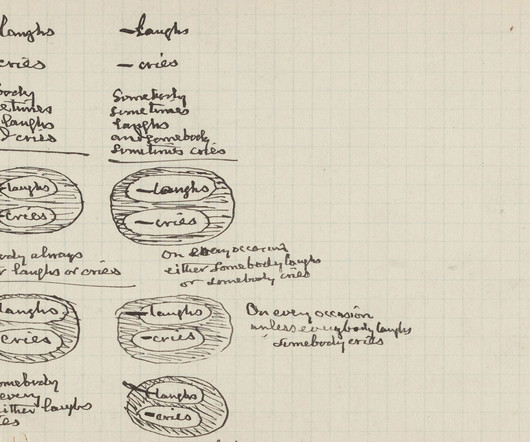 laughs
cries
body
etimes
laughs
d cries
laughs
cries
body always
r laughs or cries
laughs
cries
omebody
every
ither laughs
es
—laughs
— cries
Somebody
sometimes
laughs
and somebody
sometimes cries
—laughs
—cries
On every occasion
either somebody laughs
or somebody cries
—laughs
—cries
On every occasion
unless everybody laughs
somebody cries
laughs
cries